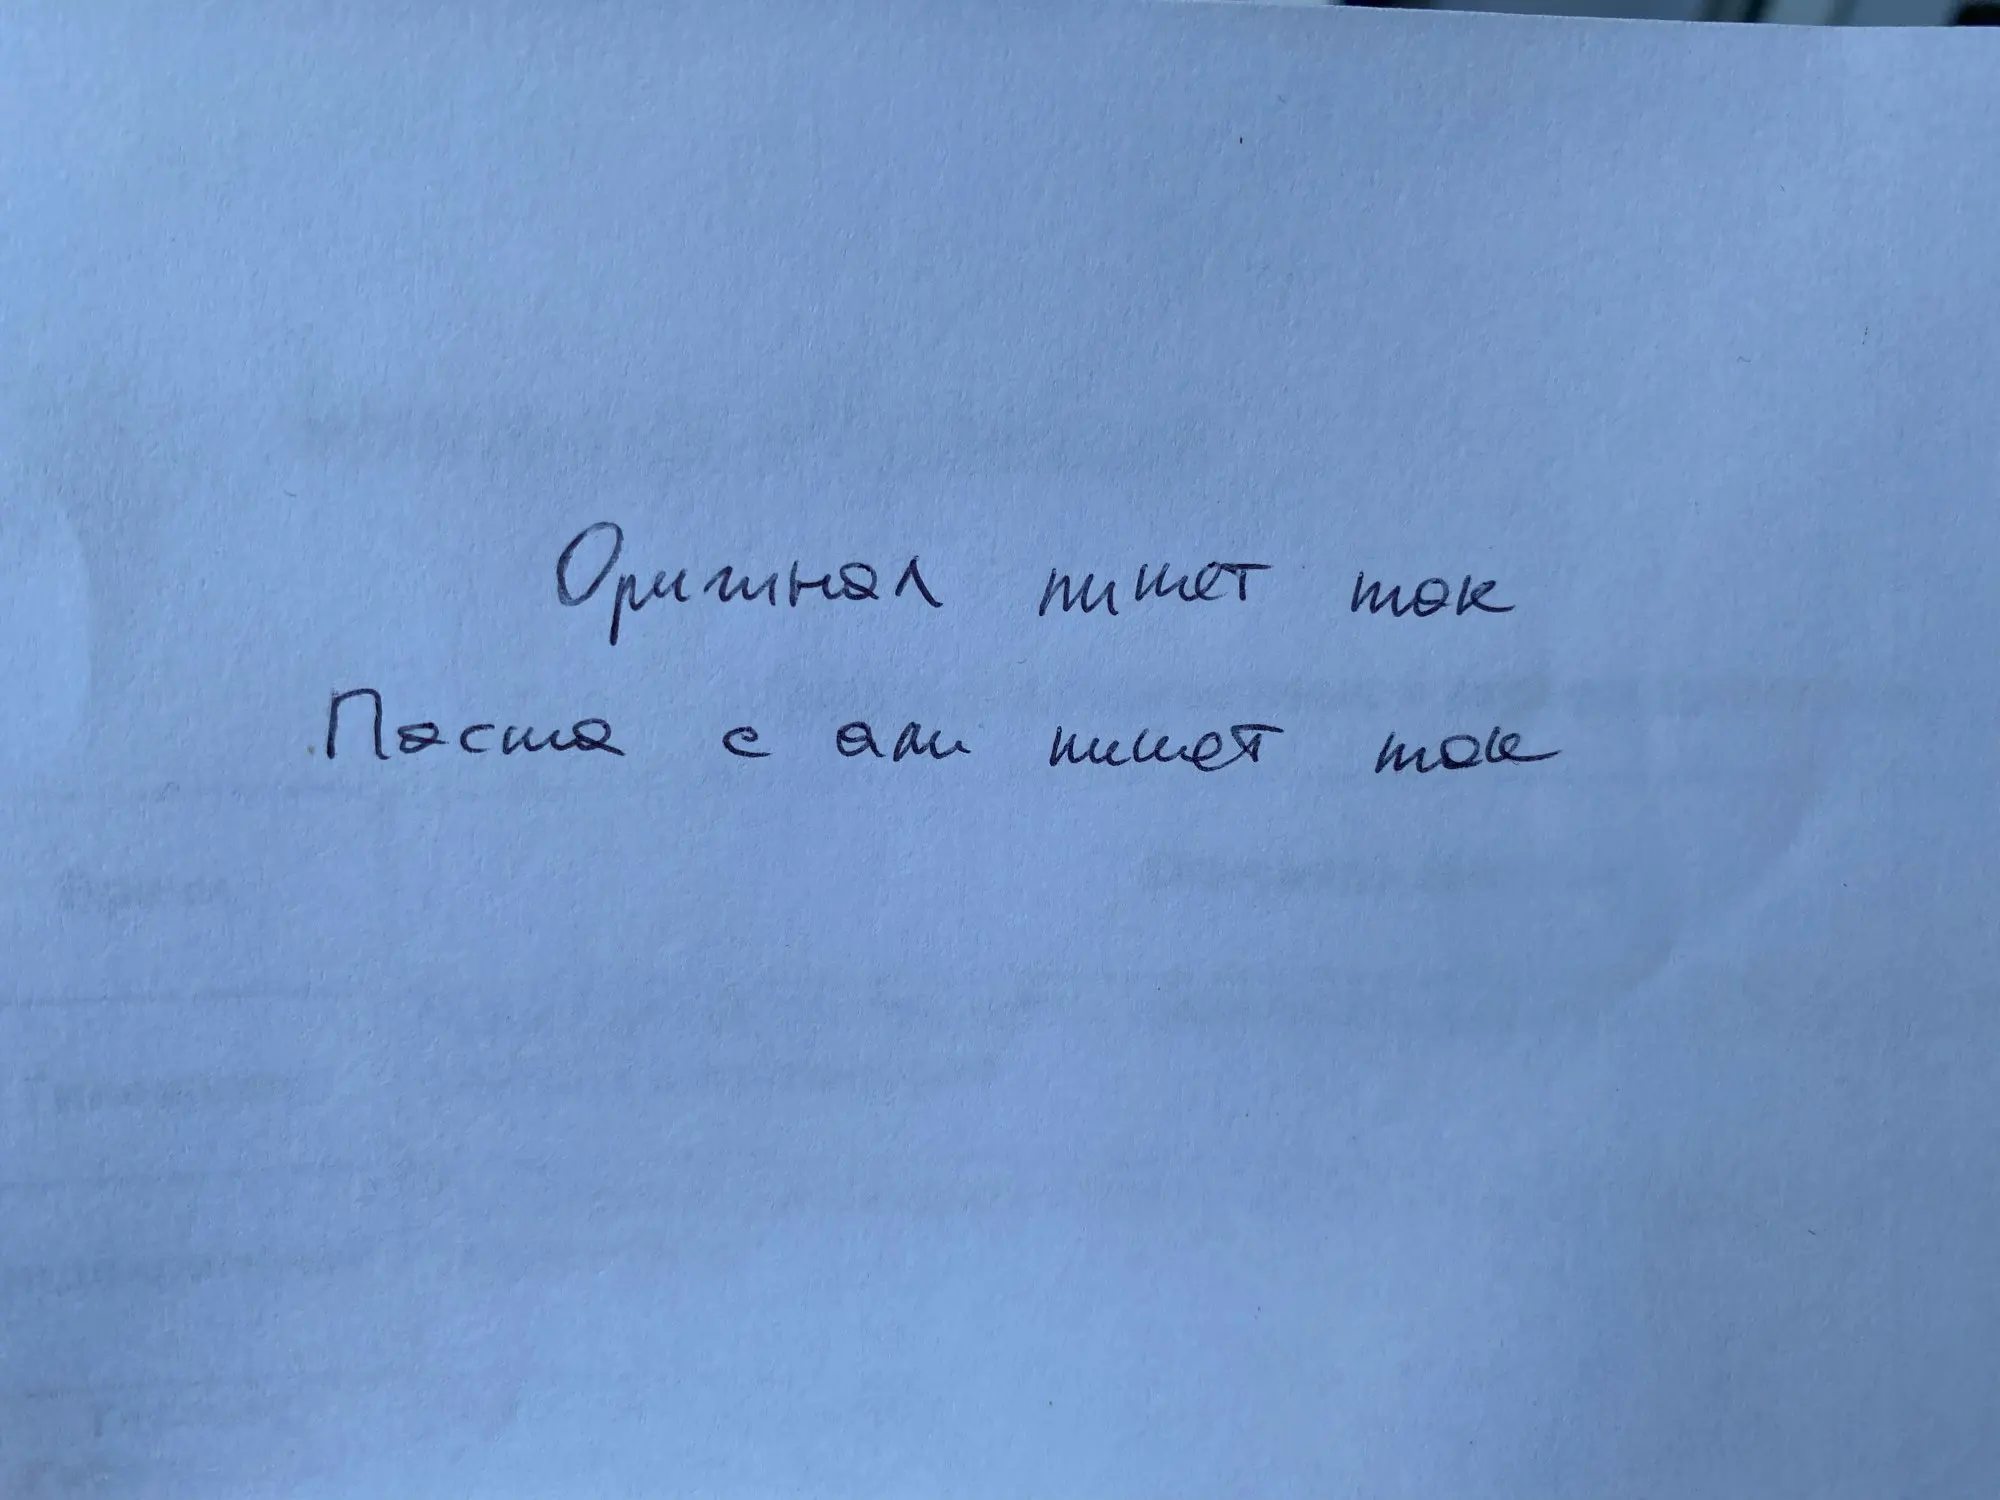 Оригинал пишет так
Паста с али пишет так